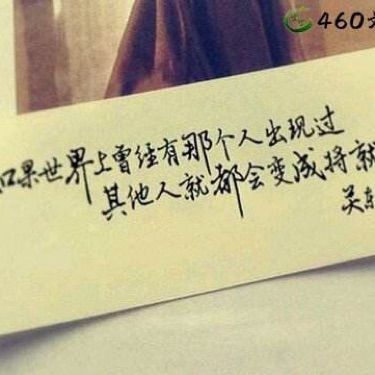 460
如果世界上曾经有那个人出现过
其他人就都会变成将就